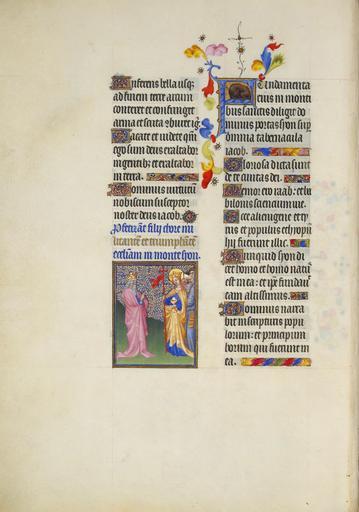 Auferens bella usq3
ad finem terre arcum
conteret et confringet
arma et scuta 9buret igni.
Vacate et videte qm
ego sum deus exaltabor
in gentib3 et exaltabor
in terra.
Dominus virtutum
nobiscum susceptor
noster deus iacob.
ecclesiam in monte syon.
Fundamenta
eius in monti
bus sanctis diligit do
minus portas syon sup
omnia tabernacula
iacob.
Gloriosa dicta sunt
de te civitas dei.
Memor ero raab et ba
bilonis scientium me.
Ecce alienigene et ty
rus et populus ethyopum
hii fuerunt illic.
Numquid syon di
cet homo et homo natus
est in ea et ipse fundavit
eam altissimus.
Dominus narra
bit in scripturis popu
lorum et principum
horum qui fuerunt in
ea.